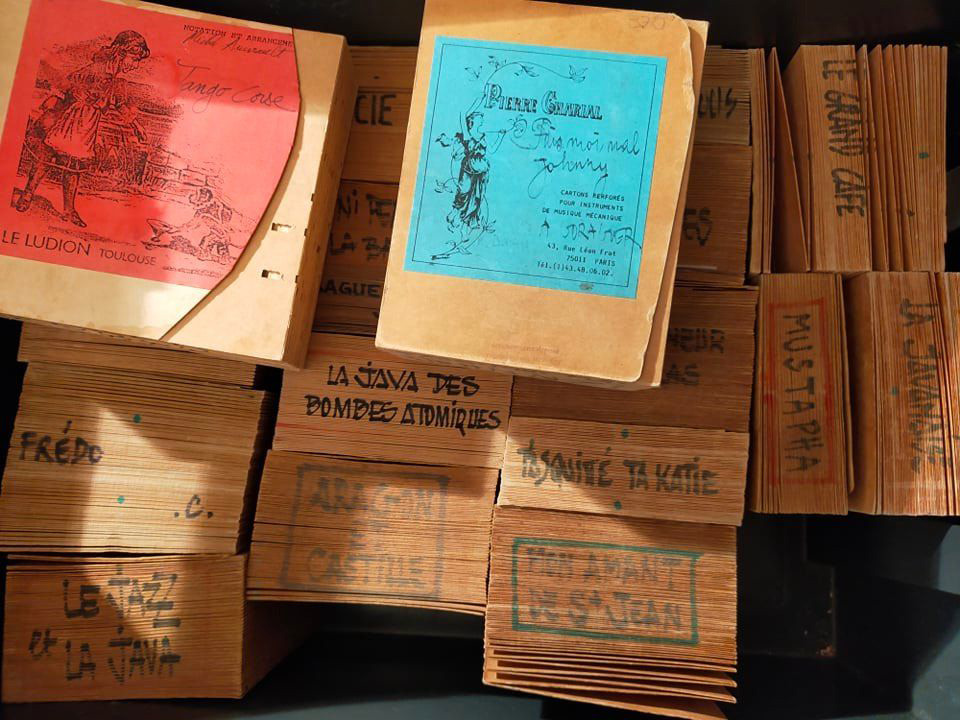 NOTATION ET ARRANGEME
Tango Corse
LE LUDION TOULOUSE
320
PIERRE CHARIAL
Fais moi mal
Johnny
CARTONS PERFORÉS
POUR INSTRUMENTS
DE MUSIQUE MÉCANIQUE
43, Rue Léon Frot
75011 PARIS
Tél.(1)43.48.06.02.
CIE
LA BA
LE GRAND CAFE
MUSTAPHA
LA JAVANAISE
LA JAVA DES
BOMBES ATOMIQUES
FRÉDO
.C.
T'AS QUITTÉ TA KATIE
ARAGON
ET
CASTILLE
MON AMANT
DE St JEAN
LE JAZZ
et LA JAVA